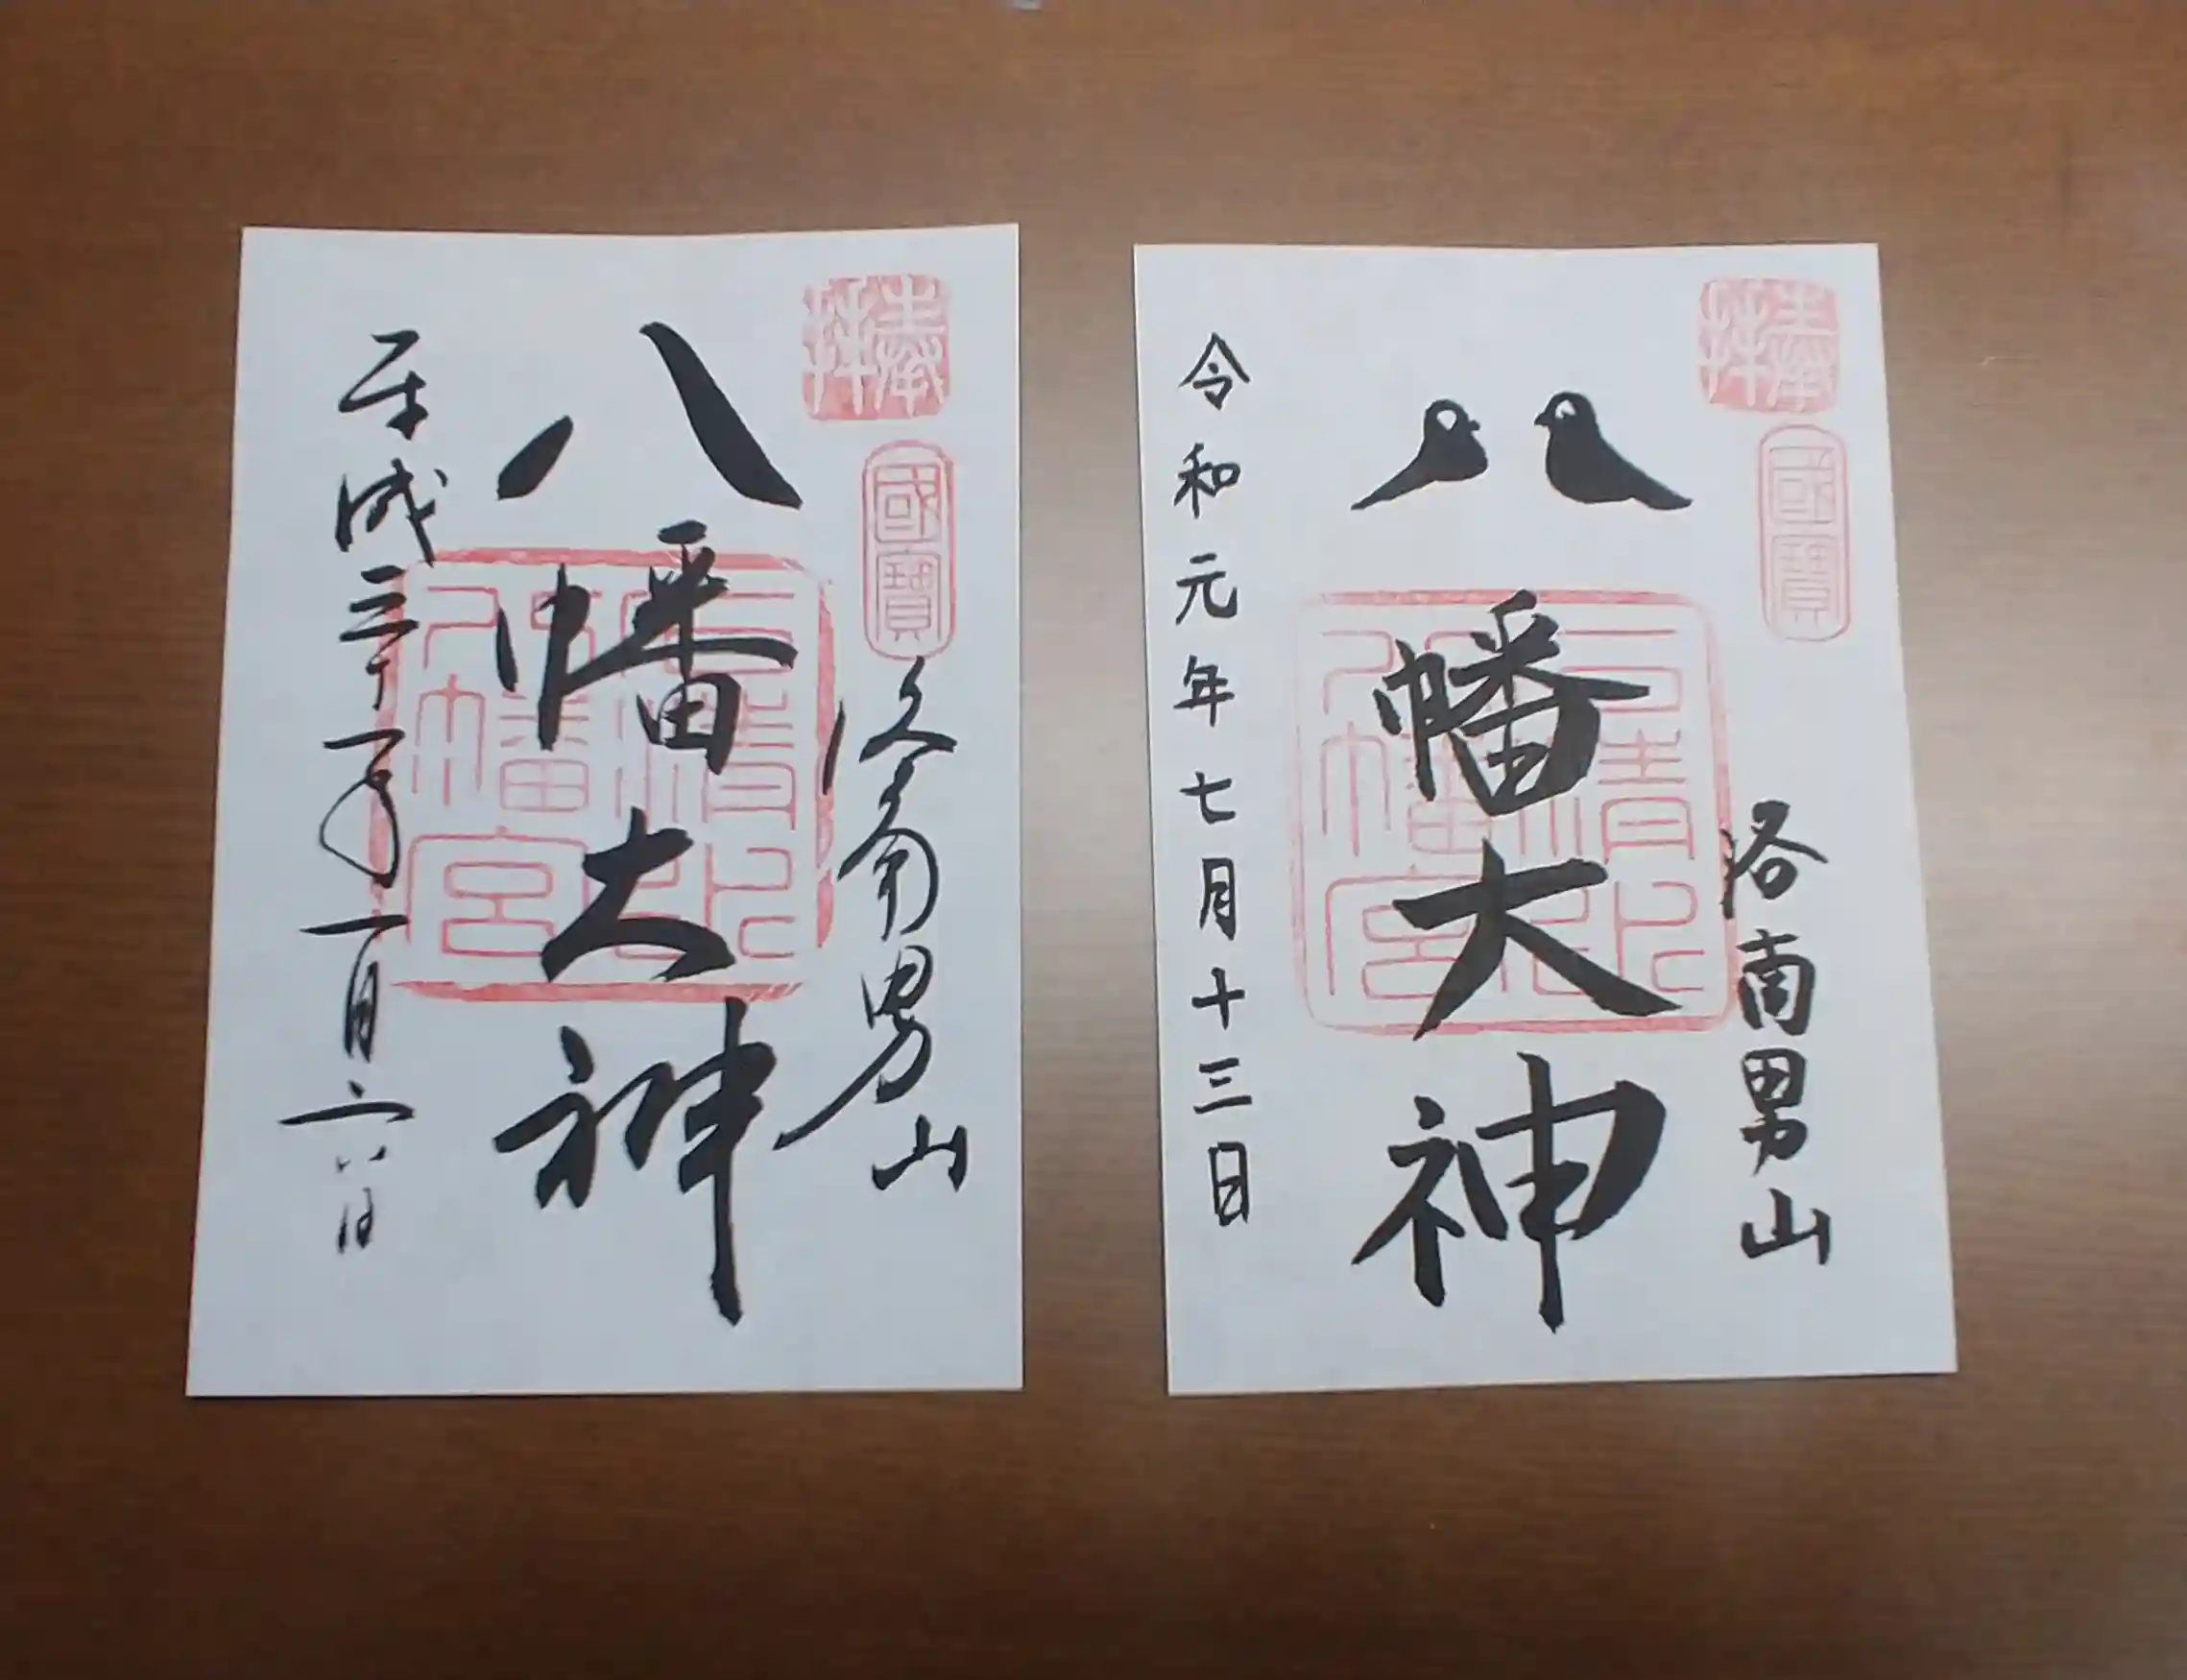 奉拝
國寶
洛南男山
八幡大神
石清水八幡宮
平成三十一年一月六日
奉拝
國寶
洛南男山
八幡大神
石清水八幡宮
令和元年七月十三日